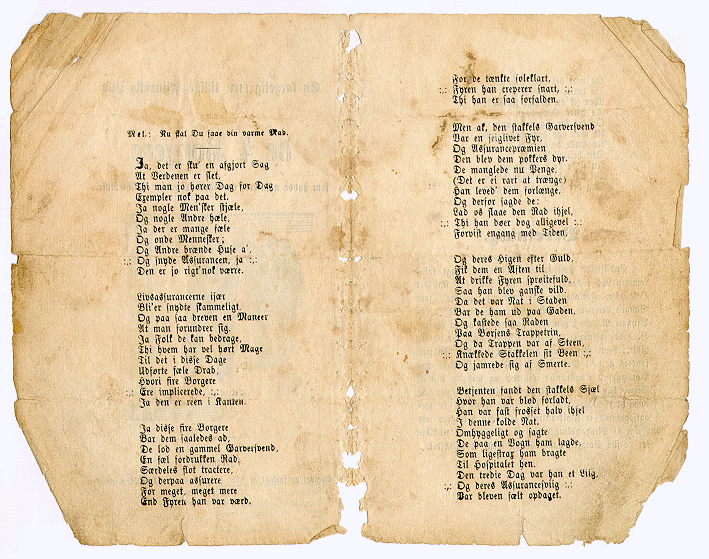 Mel.: Nu skal Du faae din varme Mad.
Ja, det er sku' en afgjort Sag
At Verdenen er slet,
Thi man jo hører Dag for Dag
Exempler nok paa det.
Ja nogle Men'sker stjæle,
Og nogle Andre hæle,
Ja der er mange fæle
Og onde Mennesker;
Og Andre brænde Huse a',
:,: Og snyde Assurancen, ja :,:
Den er jo rigt'nok værre.
Livsassurancerne især
Bli'er snydte skammeligt.
Og paa saa dreven en Maneer
At man forundrer sig.
Ja Folk de kan bedrage,
Thi hvem har vel hørt Mage
Til det i disse Dage
Udførte fæle Drab,
Hvori fire Borgere
:,: Ere implicerede, :,:
Ja den er reen i Kanten.
Ja disse fire Borgere
Bar dem saaledes ad,
De lod en gammel Garversvend,
En fæl fordrukken Rad,
Særdeles flot tractere,
Og derpaa assurere
For meget, meget mere
End Fyren han var værd.
For de tænkte soleklart,
:,: Fyren han creperer snart, :,:
Thi han er saa forfalden.
Men ak, den stakkels Garversvend
Var en seiglivet Fyr,
Og Assurancepræmien
Den blev dem pokkers dyr.
De manglede nu Penge,
(Det er ei rart at trænge)
Han leved' dem forlænge,
Og derfor sagde de:
Lad os slaae den Rad ihjel,
:,: Thi han døer dog alligevel :,:
Forvist engang med Tiden.
Og deres Higen efter Guld
Fik dem en Aften til
At drikke Fyren sprøitefuld,
Saa han blev ganske vild.
Da det var Nat i Staden
Bar de ham ud paa Gaden,
Og kastede saa Raden
Paa Børsens Trappetrin,
Og da Trappen var af Steen,
:,: Knækkede Stakkelen sit Been :,:
Og jamrede sig af Smerte.
Betjenten fandt den stakkels Sjæl
Hvor han var blød forladt,
Han var fast frosset halv ihjel
I denne kolde Nat.
Omhyggeligt og sagte
De paa en Vogn ham lagde,
Som ligestrax ham bragte
Til Hospitalet hen.
Den tredie Dag var han et Liig,
:,: Og deres Assurancesviig :,:
Var bleven fælt opdaget.